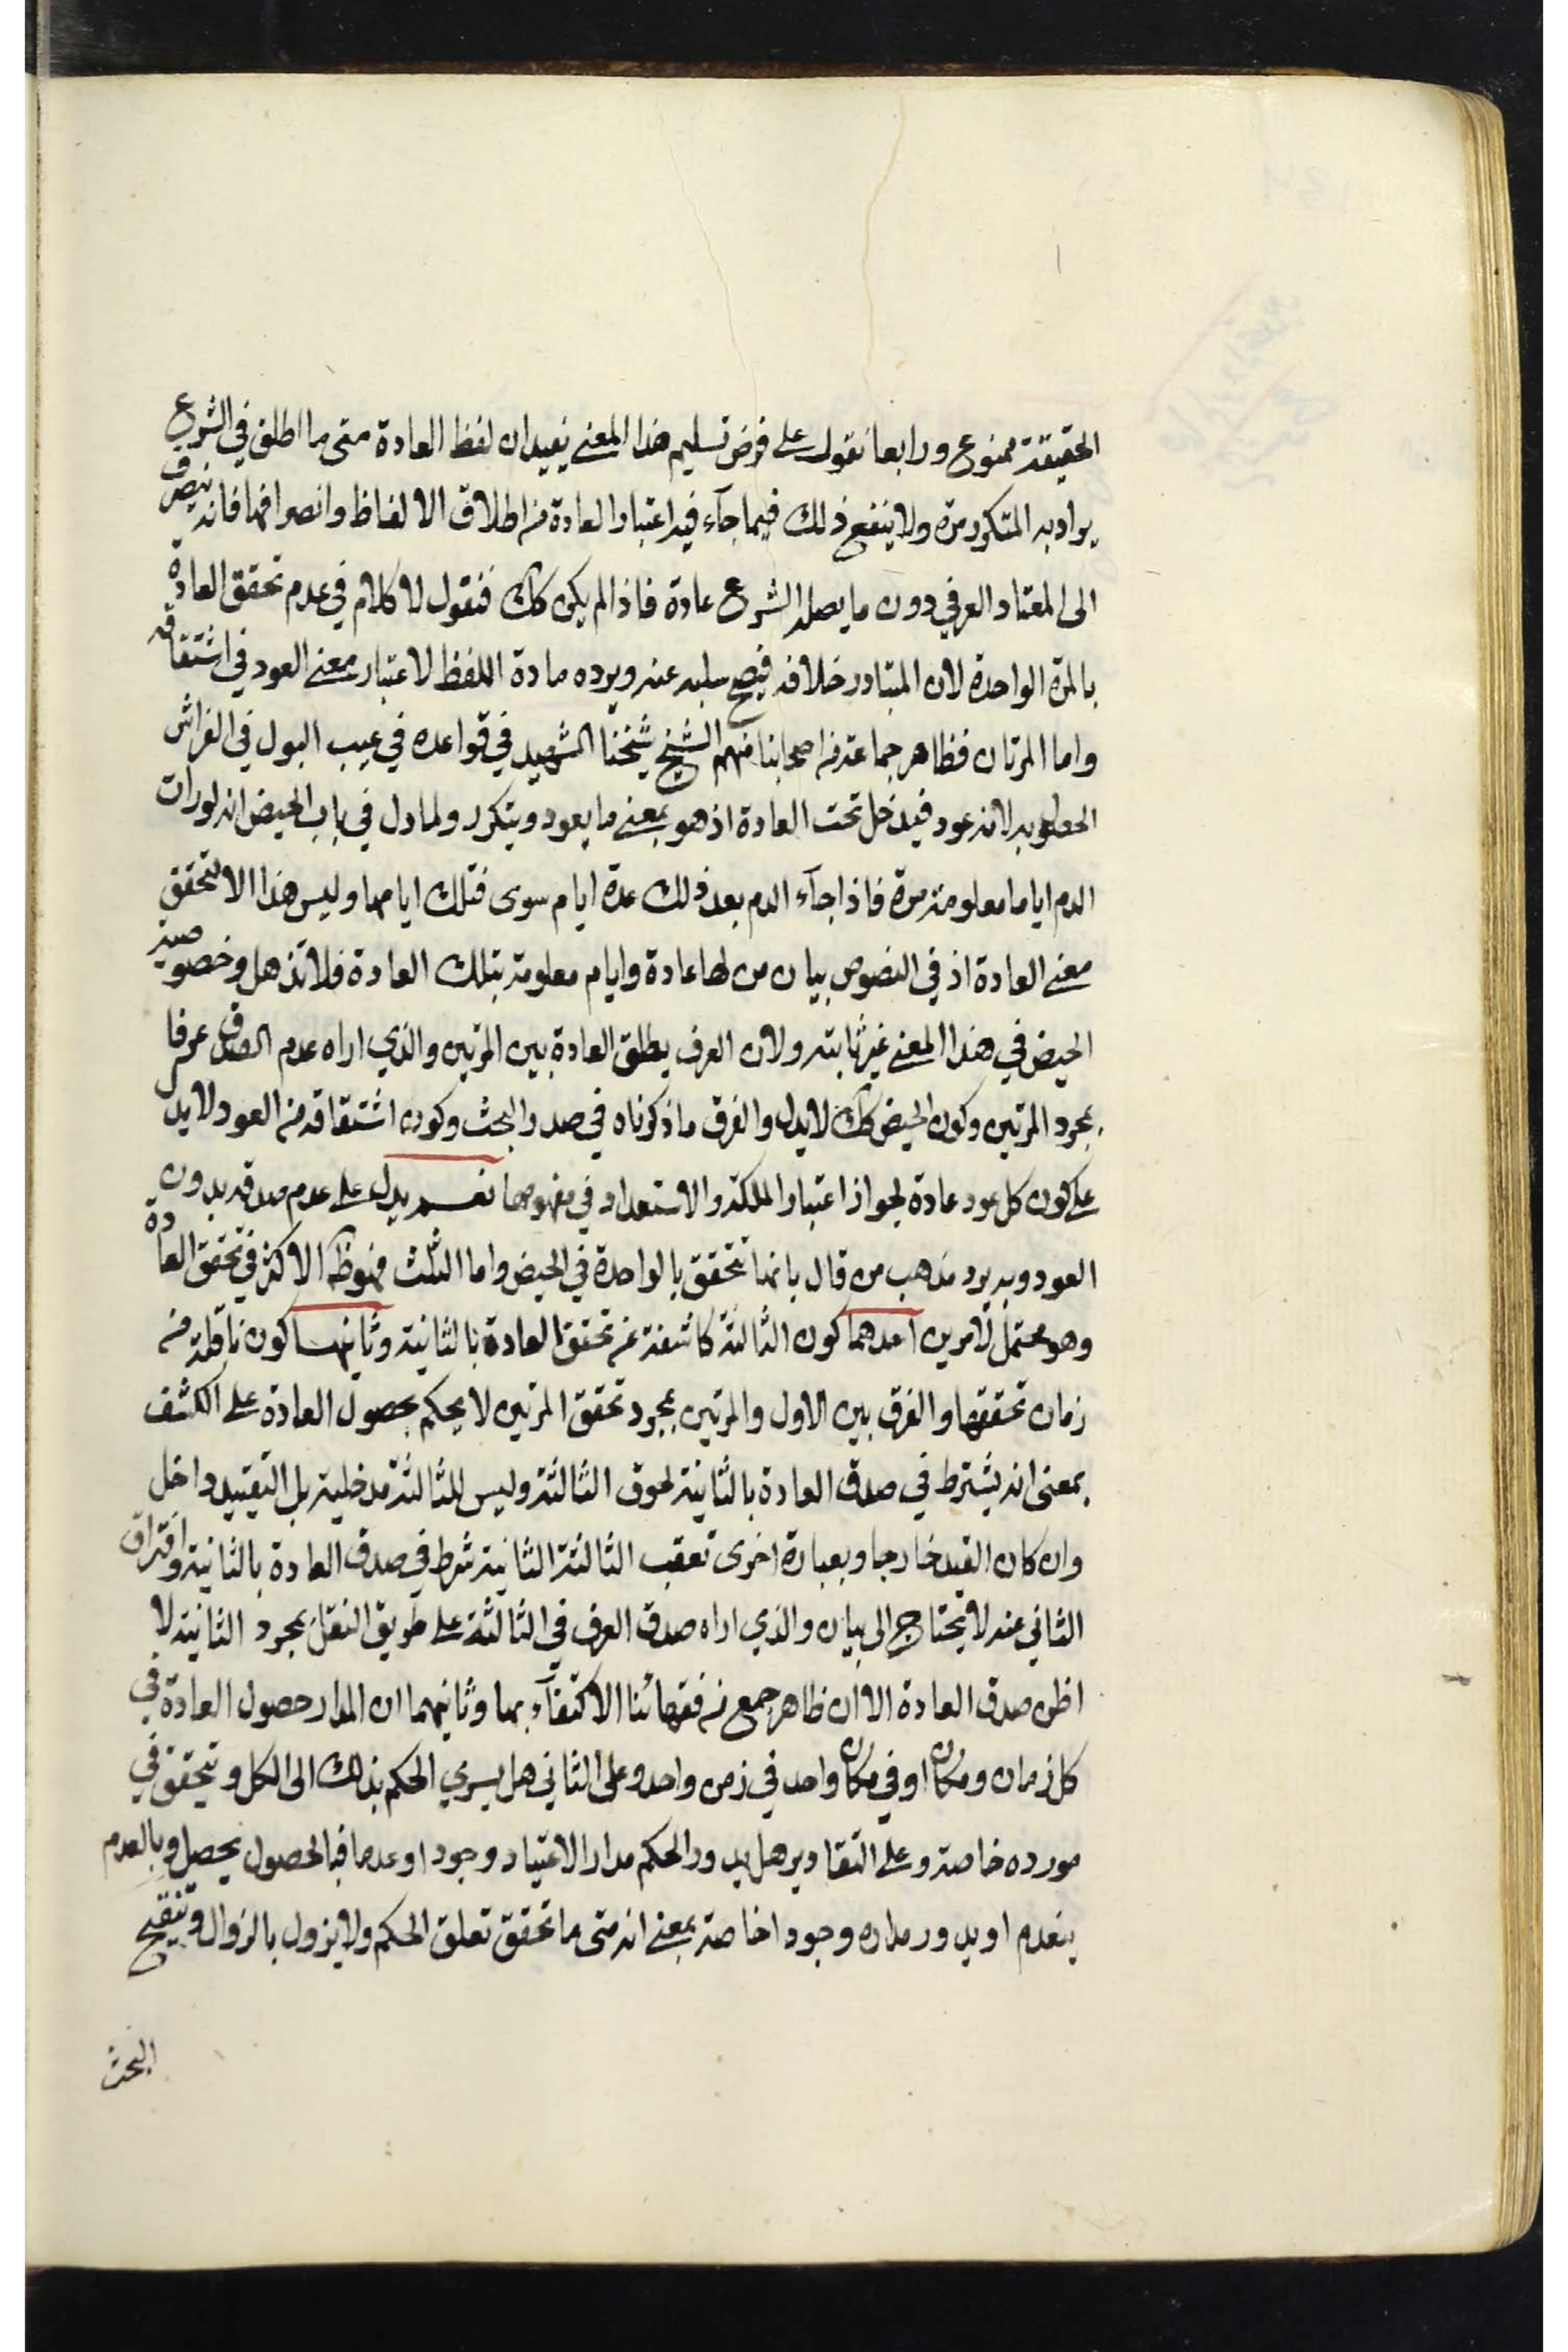 الحقيقة ممنوع ورابعا نقول على فرض تسليم هذا المعنى يفيد ان لفظ العادة متى ما اطلق في الشرع
يراد به المتكرر مرة ولا ينفع ذلك فيما جآء فيه اعتبار العادة من اطلاق الالفاظ وانصرافها فانه ينصرف
الى المعتاد العرفي دون ما يصله الشرع عادة فاذا لم يكن كك فنقول لا كلام في عدم تحقق العادة
بالمرة الواحدة لان المتبادر خلافه فيصح سلبه عنه ويرده مادة اللفظ لاعتبار معنى العود في اشتقاقه
واما المرتان فظاهر جماعة من اصحابنا منهم الشيخ شيخنا الشهيد في قواعده في عيب البول في الفراش
لانه عود فيدخل تحت العادة اذ هو بمعنى ما يعود ويتكرر ولما دل في باب الحيض انه لو رات
الدم اياما معلومة مرة فاذا جآء الدم بعد ذلك عدة ايام سوى فتلك ايامها وليس هذا الا لتحقق
معنى العادة اذ في النصوص بيان من لها عادة وايام معلومة بتلك العادة فلا تذهل وخصوصية
الحيض في هذا المعنى غير ثابته ولان العرف يطلق العادة بين المرتين والذي اراه عدم الصدق عرفا
بمجرد المرتين وكون الحيض كك لا يدل والفرق ما ذكرناه في صدر البحث وكون اشتقاقه من العود لا يدل
على كون كل عود عادة لجواز اعتبار الملكة والاستعداد في مفهومها نعم يدل على عدم صدقه بدون
العود وبه يرد مذهب من قال بانها تتحقق بالواحدة في الحيض واما الثلث فهو ظ الاكثر في تحقق العادة
وهو محتمل لامرين احدهما كون الثالثة كاشفة عن تحقق العادة بالثانية وثانيهما كون ناقلة من
زمان تحققها والفرق بين الاول والمرتين بمجرد تحقق المرتين لا يحكم بحصول العادة على الكشف
بمعنى انه يشترط في صدق العادة بالثانية لحوق الثالثة وليس للثالثة مدخلية بل التقييد داخل
وان كان القيد خارجا وبعبارة اخرى تعقب الثالثة الثانية شرط في صدق العادة بالثانية وافتراق
الثاني عنه لا يحتاج الى بيان والذي اراه صدق العرف في الثالثة على طريق النقل بمجرد الثانية لا
اظن صدق العادة الا ان ظاهر جمع من فقهائنا الاكتفآء بها وثانيهما ان المدار حصول العادة في
كل زمان ومكان او في مكان واحد في زمن واحد وعلى الثاني هل يسري الحكم بذلك الى الكل ويتحقق في
مورده خاصة وعلى التقادير هل يدور الحكم مدار الاعتياد وجودا وعدما فبالحصول يحصل وبالعدم
ينعدم او يدور مداره وجودا خاصة بمعنى انه متى ما تحقق تعلق الحكم ولا يزول بالزوال وتنقيح
البحث